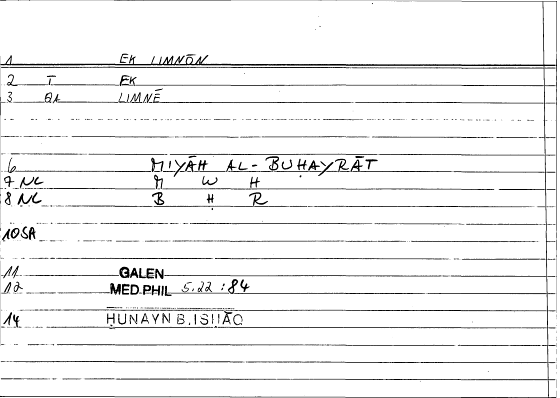 1 EK LIMNŌN
2 T EK
3 BA LIMNĒ
6 MIYĀH AL-BUḤAYRĀT
7 NC M W H
8 NC B Ḥ R
10 SA
11 GALEN
12 MED.PHIL 5.22 :84
14 ḤUNAYN B.ISḤĀQ